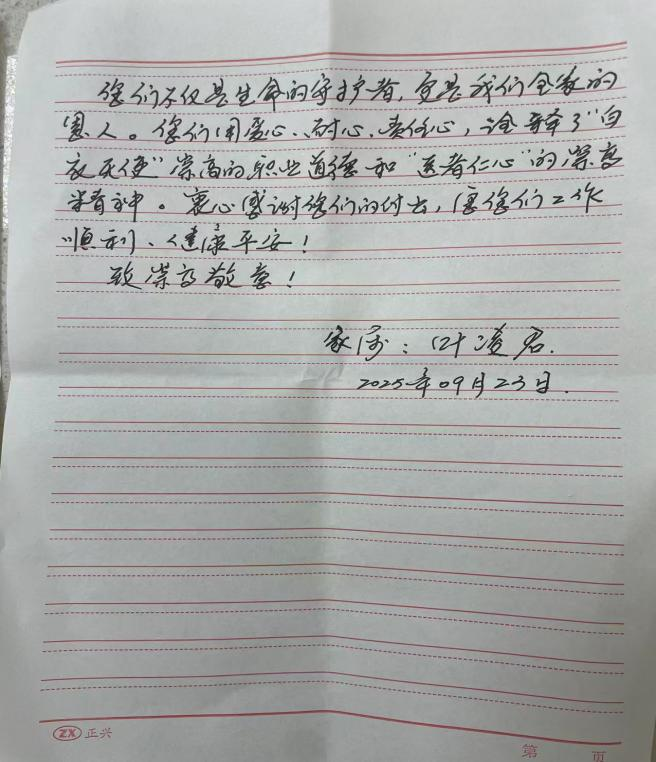 您们不仅是生命的守护者，更是我们全家的
恩人。您们用爱心、耐心、责任心，诠释了“白
衣天使”崇高的职业道德和“医者仁心”的崇高
精神。衷心感谢您们的付出，愿您们工作
顺利、健康平安！
致崇高敬意！
家属：叶凌君.
2025年09月23日.
ZX 正兴
第 页